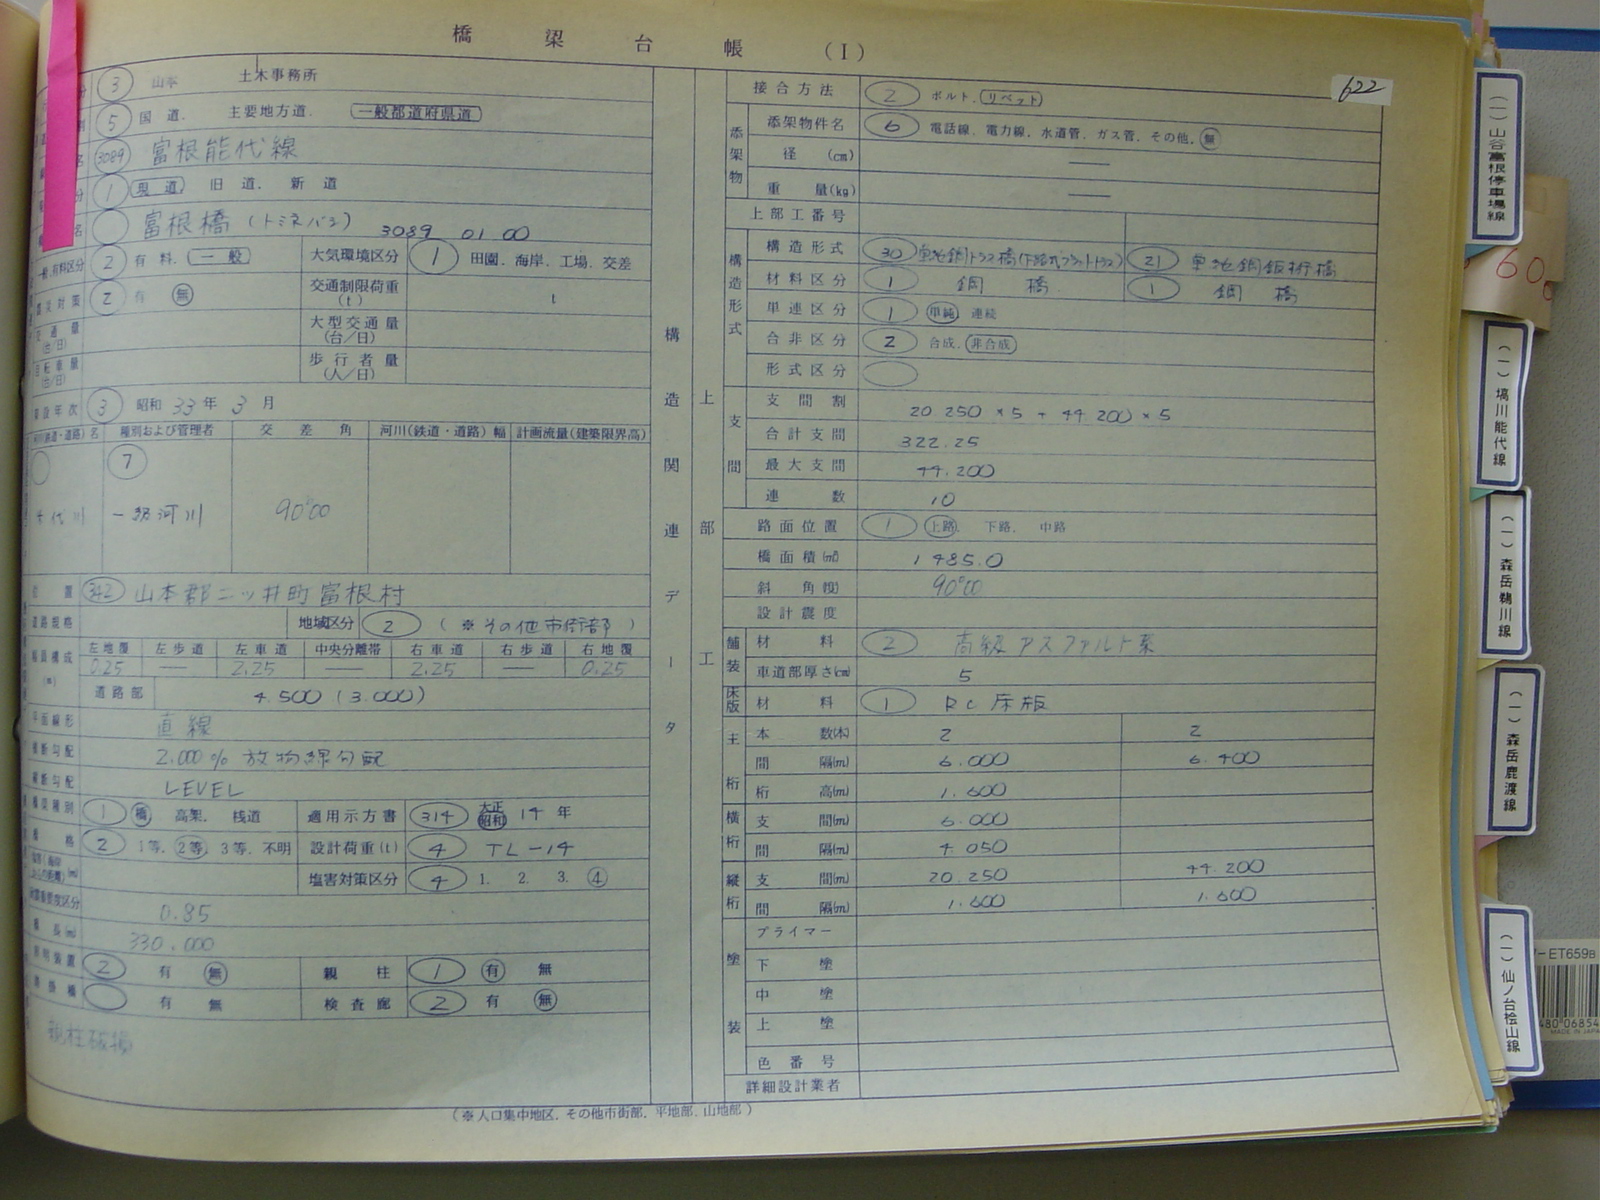 橋梁台帳 (I)
622
3 山本 土木事務所
5 国道. 主要地方道. 一般都道府県道
3089 富根能代線
1 現道 旧道. 新道
富根橋 (トミネバシ) 3089 01 00
一般・有料区分 2 有料. 一般 大気環境区分 1 田園. 海岸. 工場. 交差
対策 2 有 無 交通制限荷重(t) t
大型交通量(台/日)
(台/日) 歩行者量(人/日)
年次 3 昭和 33年 3月
河川(鉄道・道路)名 種別および管理者 交差角 河川(鉄道・道路)幅 計画流量(建築限界高)
7
代川 一級河川 90°00
位置 342 山本郡二ッ井町富根村
道路規格 地域区分 2 (※その他市街部)
幅員構成(m) 左地覆 左歩道 左車道 中央分離帯 右車道 右歩道 右地覆
0.25 — 2.25 — 2.25 — 0.25
道路部 4.500 (3.000)
平面線形 直線
横断勾配 2.000% 放物線勾配
縦断勾配 LEVEL
橋梁種別 1 橋 高架. 桟道 適用示方書 314 大正 昭和 14年
橋格 2 1等. 2等. 3等. 不明 設計荷重(t) 4 TL-14
塩害対策区分 4 1. 2. 3. ④
0.85
橋長(m) 330.000
照明装置 2 有 無 親柱 1 有 無
有 無 検査廊 2 有 無
親柱破損
(※人口集中地区. その他市街部. 平地部. 山地部)
構造関連データ
上部工
接合方法 2 ボルト. リベット
添架物
添架物件名 6 電話線. 電力線. 水道管. ガス管. その他. 無
径 (cm) —
重量(kg) —
上部工番号
構造形式
構造形式 30 単純鋼トラス橋(下路式プラットトラス) 21 単純鋼鈑桁橋
材料区分 1 鋼橋 1 鋼橋
単連区分 1 単純 連続
合非区分 2 合成. 非合成
形式区分
支間
支間割 20.250×5+44.200×5
合計支間 322.25
最大支間 44.200
連数 10
路面位置 1 上路. 下路. 中路
橋面積(㎡) 1485.0
斜角(度) 90°00
設計震度
舗装
材料 2 高級アスファルト系
車道部厚さ(cm) 5
床版 材料 1 RC床版
主桁
本数(本) 2 2
間隔(m) 6.000 6.400
桁高(m) 1.600
横桁
支間(m) 6.000
間隔(m) 4.050
縦桁
支間(m) 20.250 44.200
間隔(m) 1.600 1.600
塗装
プライマー
下塗
中塗
上塗
色番号
詳細設計業者
(一)山谷富根停車場線
(一)塙川能代線
(一)森岳鵜川線
(一)森岳鹿渡線
(一)仙ノ台桧山線
ET659B
480 06854
MADE IN JAPAN